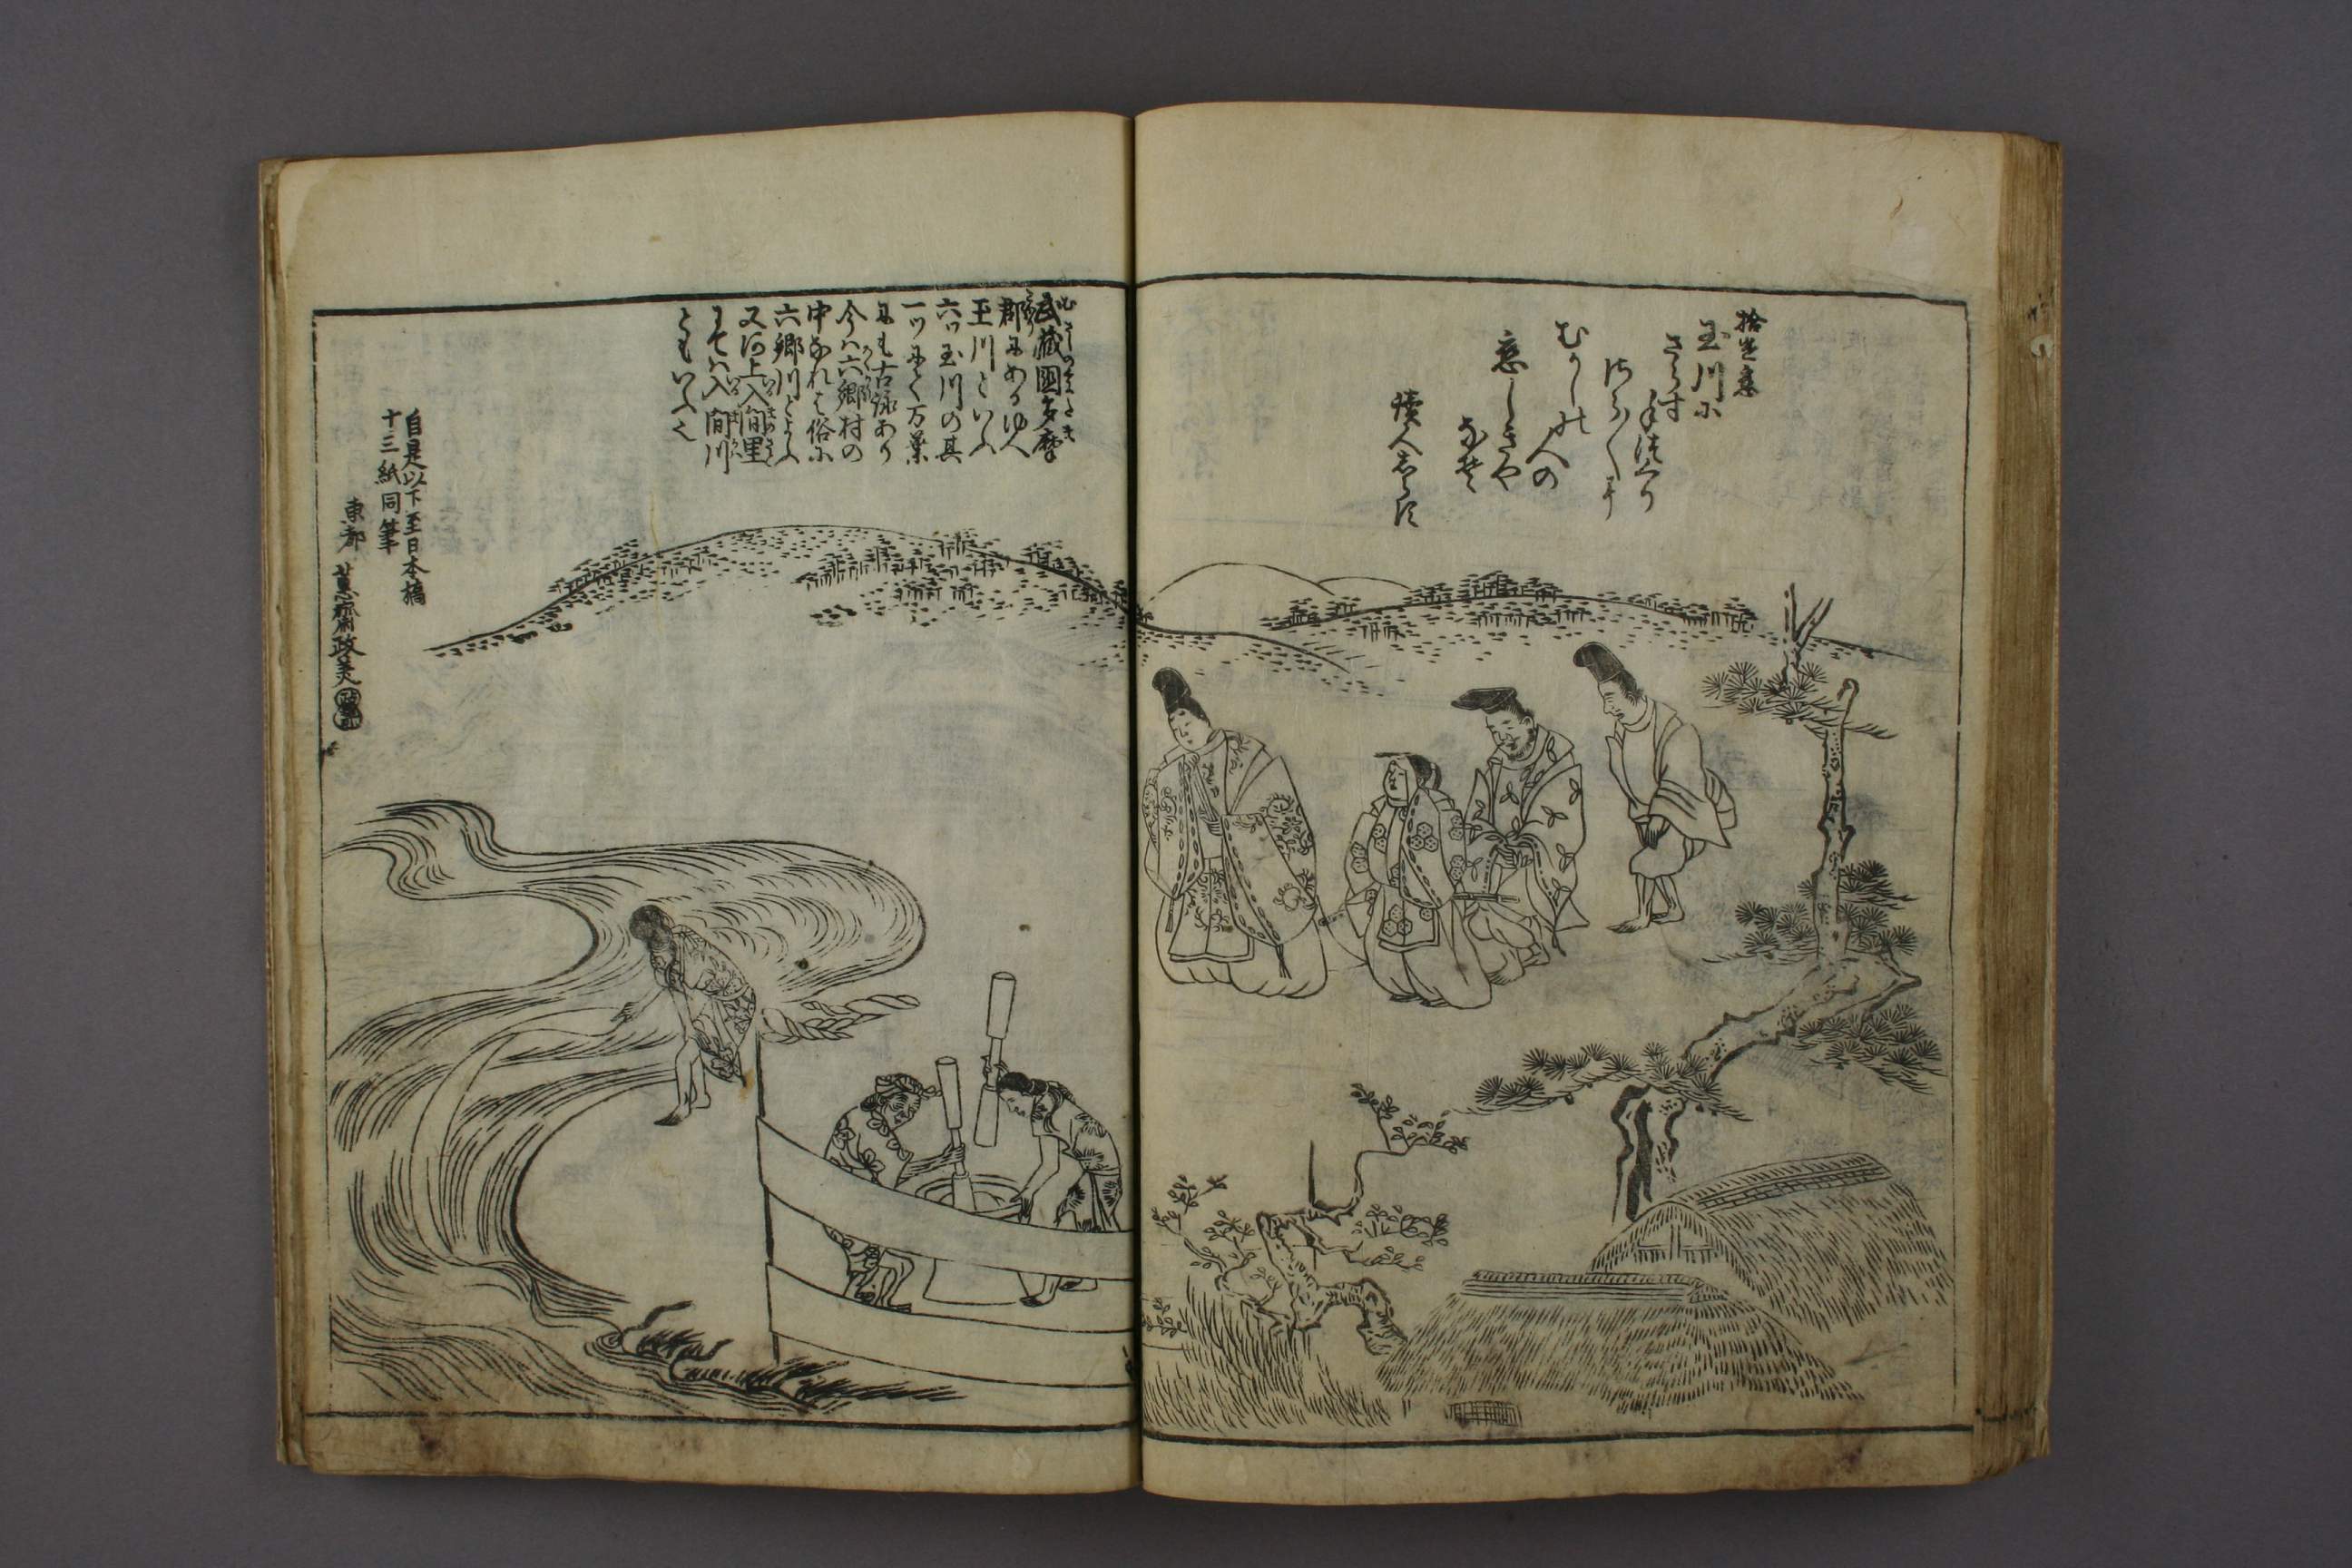 拾遺恋
玉川に
さらす
手つくり
さら〳〵に
むかしの
人の
恋しきや
なそ
読人しらす
武蔵國多摩
郡にあるゆへ
玉川といふ
六ツ玉川の其
一ツにて万葉
にも古詠あり
今ハ六郷村の
中なれは俗に
六郷川とよふ
又河上入間里
にては入間川
ともいふ也
自是以下至日本橋
十三紙同筆
東都 蕙齋政美